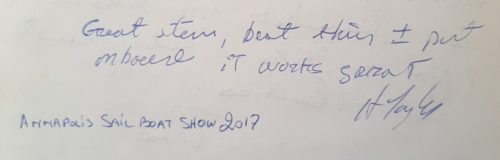 Great item, best thing I put
onboard it works great
H Taylor
ANNAPOLIS SAIL BOAT SHOW 2017